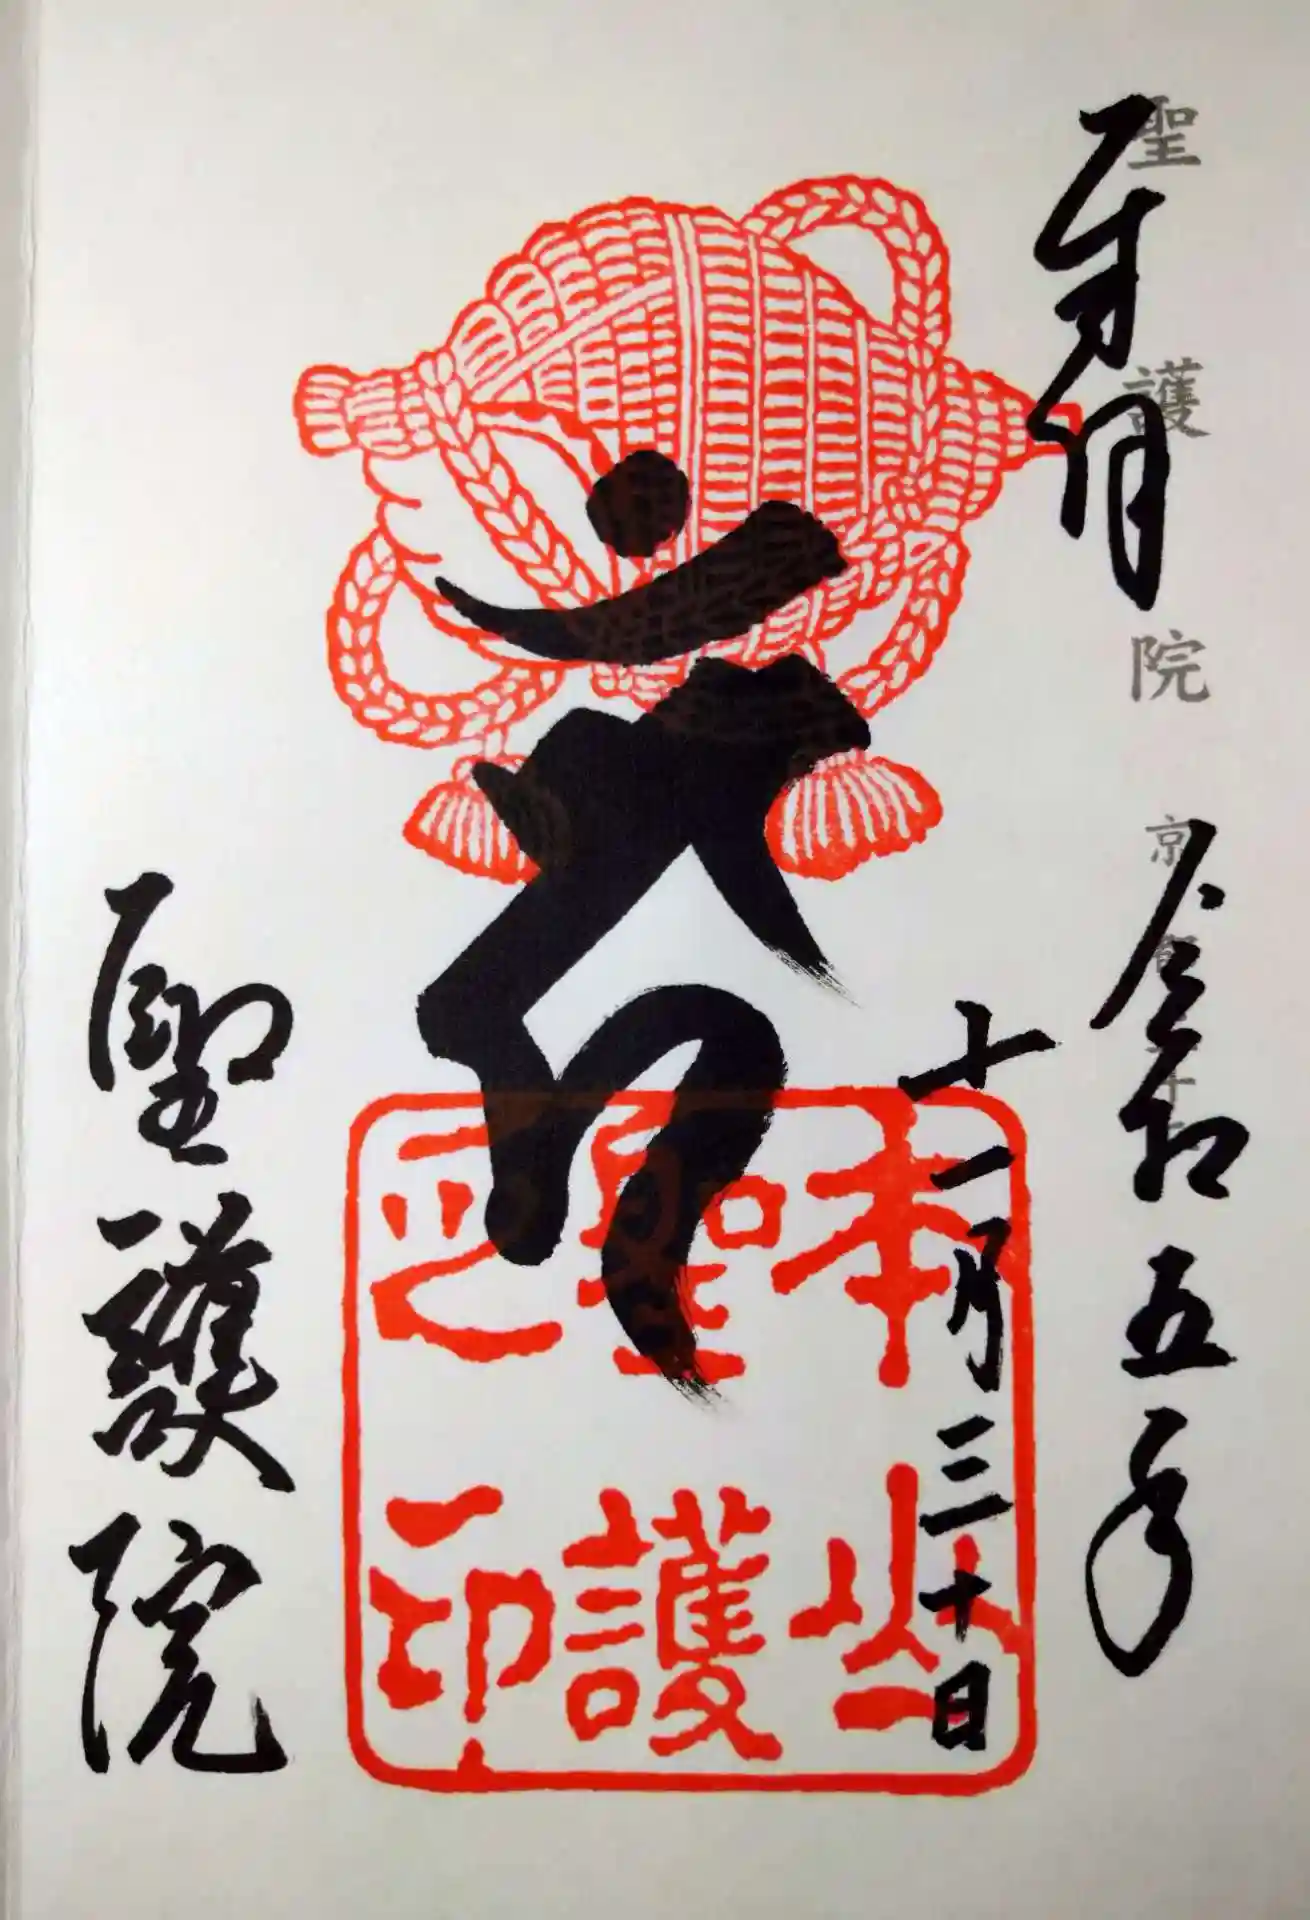 聖護院
令和五年
十一月三十日
本山
聖護
之印
聖護院